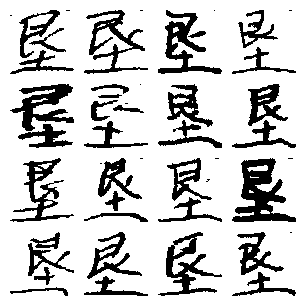 垦垦垦垦
垦垦垦垦
垦垦垦垦
垦垦垦垦